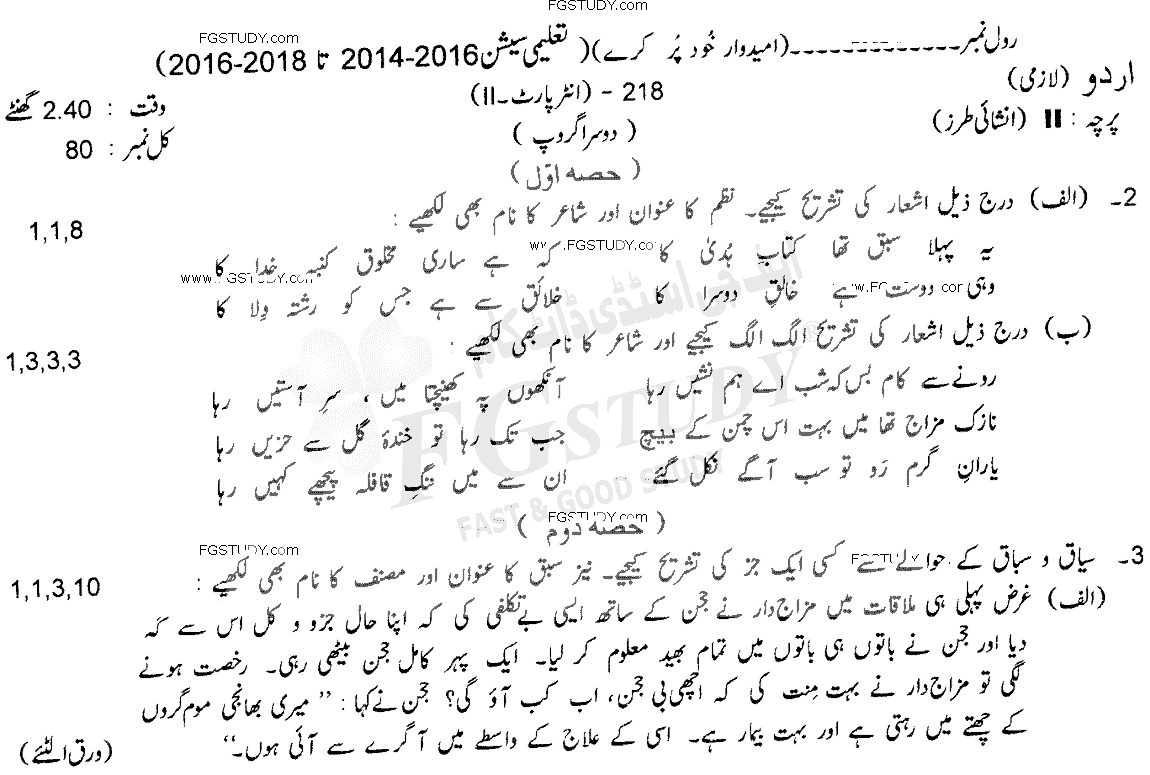 FGSTUDY.com
رول نمبر-------------(امیدوار خُود پُر کرے)( تعلیمی سیشن 2016-2014 تا 2018-2016)
اردو (لازمی)
218 - (انٹر پارٹ۔II)
وقت : 2.40 گھنٹے
پرچہ : II (انشائی طرز)
( دوسرا گروپ )
کل نمبر : 80
( حصہ اوّل )
2۔ (الف) درج ذیل اشعار کی تشریح کیجیے۔ نظم کا عنوان اور شاعر کا نام بھی لکھیے : 1,1,8
یہ پہلا سبق تھا کتابِ ہُدیٰ کا کہ ہے ساری مخلوق کنبہ خدا کا
www.FGSTUDY.com
وہی دوست ہے خالقِ دوسرا کا خلائق سے ہے جس کو رشتہ وِلا کا
(ب) درج ذیل اشعار کی تشریح الگ الگ کیجیے اور شاعر کا نام بھی لکھیے : 1,3,3,3
رونے سے کام بس کہ شب اے ہم نشیں رہا آنکھوں پہ کھینچتا میں، سرِ آستیں رہا
نازک مزاج تھا میں بہت اس چمن کے بیچ جب تک رہا تو خندۂ گل سے حزیں رہا
یارانِ گرم رَو تو سب آگے نکل گئے ان سے میں ننگِ قافلہ پیچھے کہیں رہا
ایف جی اسٹڈی ڈاٹ کام
FGSTUDY
FAST & GOOD STUDY
FGSTUDY.com
( حصہ دوم )
FGSTUDY.com
FGSTUDY.com
3۔ سیاق و سباق کے حوالے سے کسی ایک جز کی تشریح کیجیے۔ نیز سبق کا عنوان اور مصنف کا نام بھی لکھیے : 1,1,3,10
(الف) غرض پہلی ہی ملاقات میں مزاج دار نے حجن کے ساتھ ایسی بے تکلفی کی کہ اپنا حال جزو و کل اس سے کَہ
دیا اور حجن نے باتوں ہی باتوں میں تمام بھید معلوم کر لیا۔ ایک پہر کامل حجن بیٹھی رہی۔ رخصت ہونے
لگی تو مزاج دار نے بہت مِنت کی کہ اچھی بی حجن، اب کب آؤ گی؟ حجن نے کہا : ’’ میری بھانجی موم گروں
کے چھتے میں رہتی ہے اور بہت بیمار ہے۔ اسی کے علاج کے واسطے میں آگرے سے آئی ہوں۔‘‘
(ورق الٹئے)